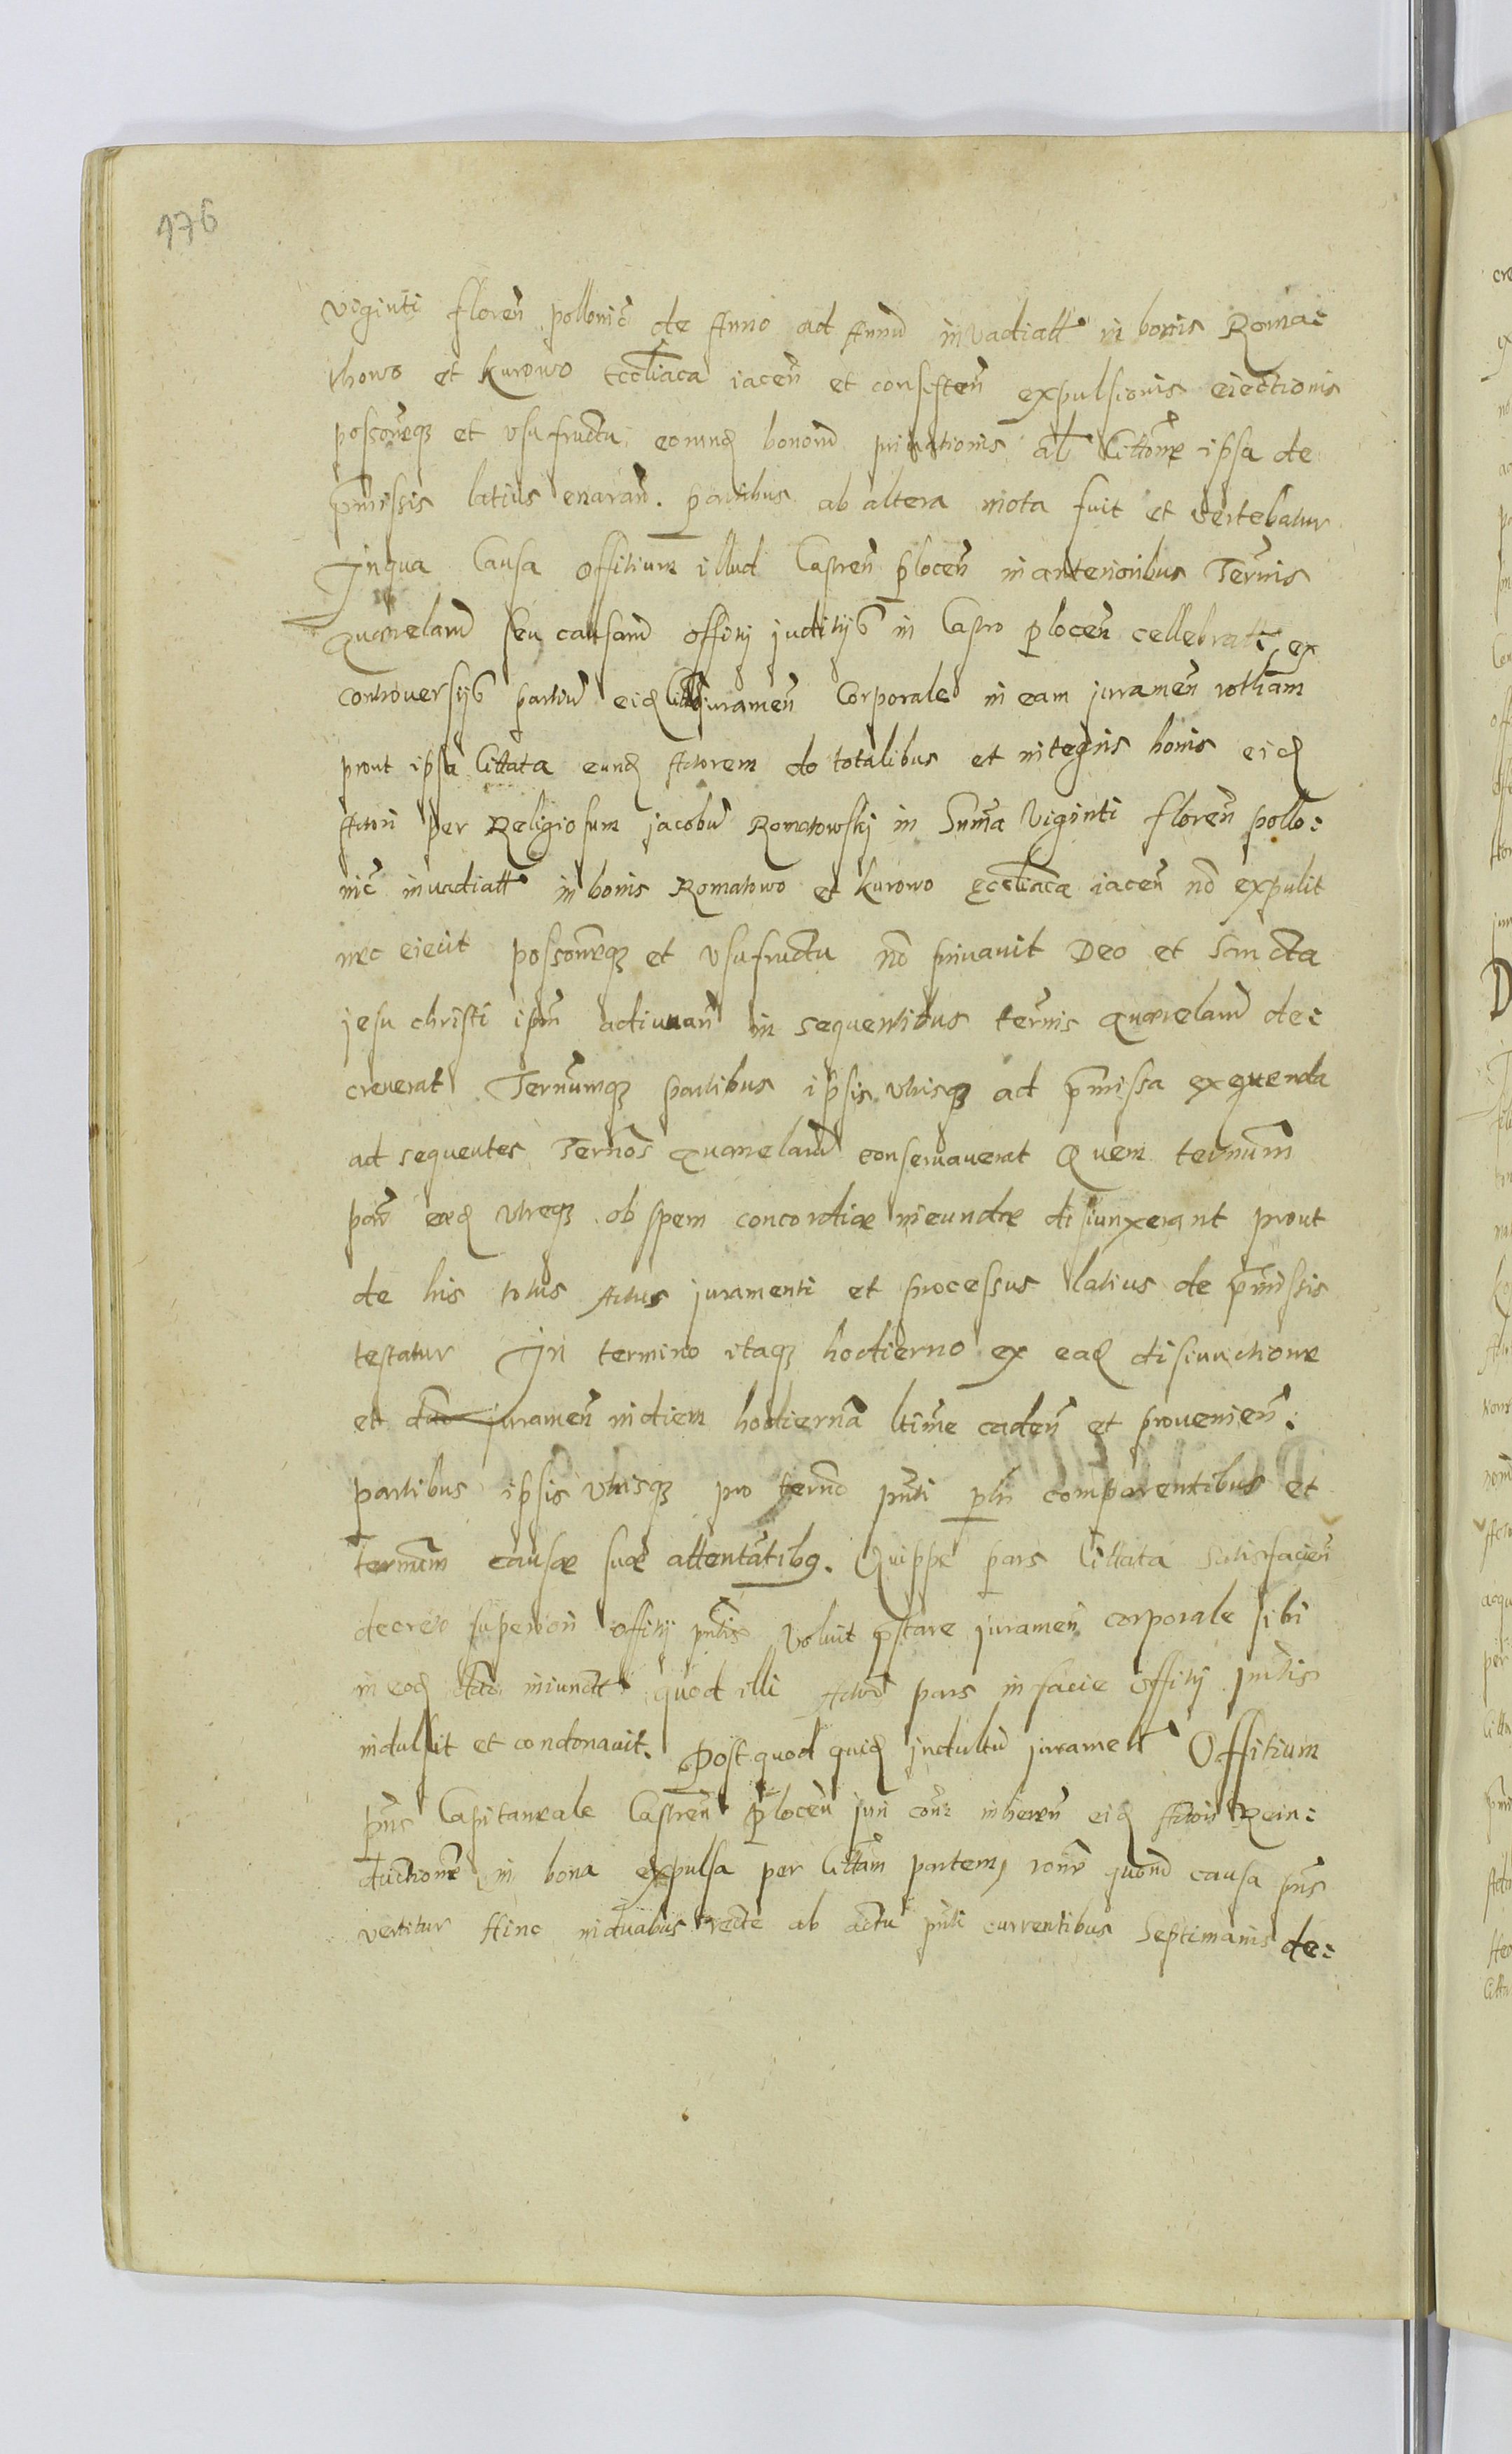 476
viginti floreñ polloniĉ de Anno ad Annũ in vadiatt in bonis Roma:
thowo et kurowo Eccłiaca iaceñ et consisteñ expulsionis eiectionis
possoneq3 et vsufructu eorund bonorũ privationis ał Cittone ipsa de
p̃missis latius enarañ. Partibus ab altera mota fuit et vertebatur
Jnqua Causa Offitium illud Castreñ Ploceñ in anterioribus Termis
Quærelarũ seu causarũ offitij juditijs in Castro Ploceñ cellebratt, ex
controversijs partiũ eid Citt jurameñ Corporale in eam jurameñ rotham
prout ipsa Cittata eund Actorem de totalibus et integris bonis eid
Actori per Religiosum jacobũ Romatowskj in Sum̃a Viginti floreñ pollo:
niĉ invadiatt in bonis Romatowo et kurowo Eccłiaca iaceñ nõ expulit
nec eiecit possoneq3 et vsufructu nõ privavit Deo et Sancta
jesu christi ipm adiuvañ in sequentibus termis Quærelarũ de:
creverat Termumq3 partibus ipsis vtrisq3 ad p̃missa exequenda
ad sequentes Termos Quærelarũ conservaverat Quem termum
par̃ eæd vtreq3 ob spem concordiæ ineundæ disiunxerant prout
de his totus Actus juramenti et processus latius de p̃missis
testatur Jn termino itaq3 hodierno ex ead disiunctione
et jurameñ in diem hodiernã ltime cadeñ et provenieñ:
partibus ipsis vtrisq3 pro termo p̃nti pr̃ comparentibus et
termum causæ suæ attentãtibq. Quippe pars Cittata Satisfacieñ
decreto superiori offitij p̃ntis voluit p̃stare jurameñ corporale sibi
in eod dcto iniunctt quod illi Actor̃ pars in facie Offitij p̃ntis
indulsit et condonavit. Post quod quid jndultũ jurament Offitium
p̃ns Capitaneale Castreñ Ploceñ juri coi inhereñ eid Actori Rein:
ductione in bona expulsa per Cittam partem rone quorũ causa p̃ns
vertitur Hinc in duabus recte ab actu p̃nti currentibus Septimanis de: